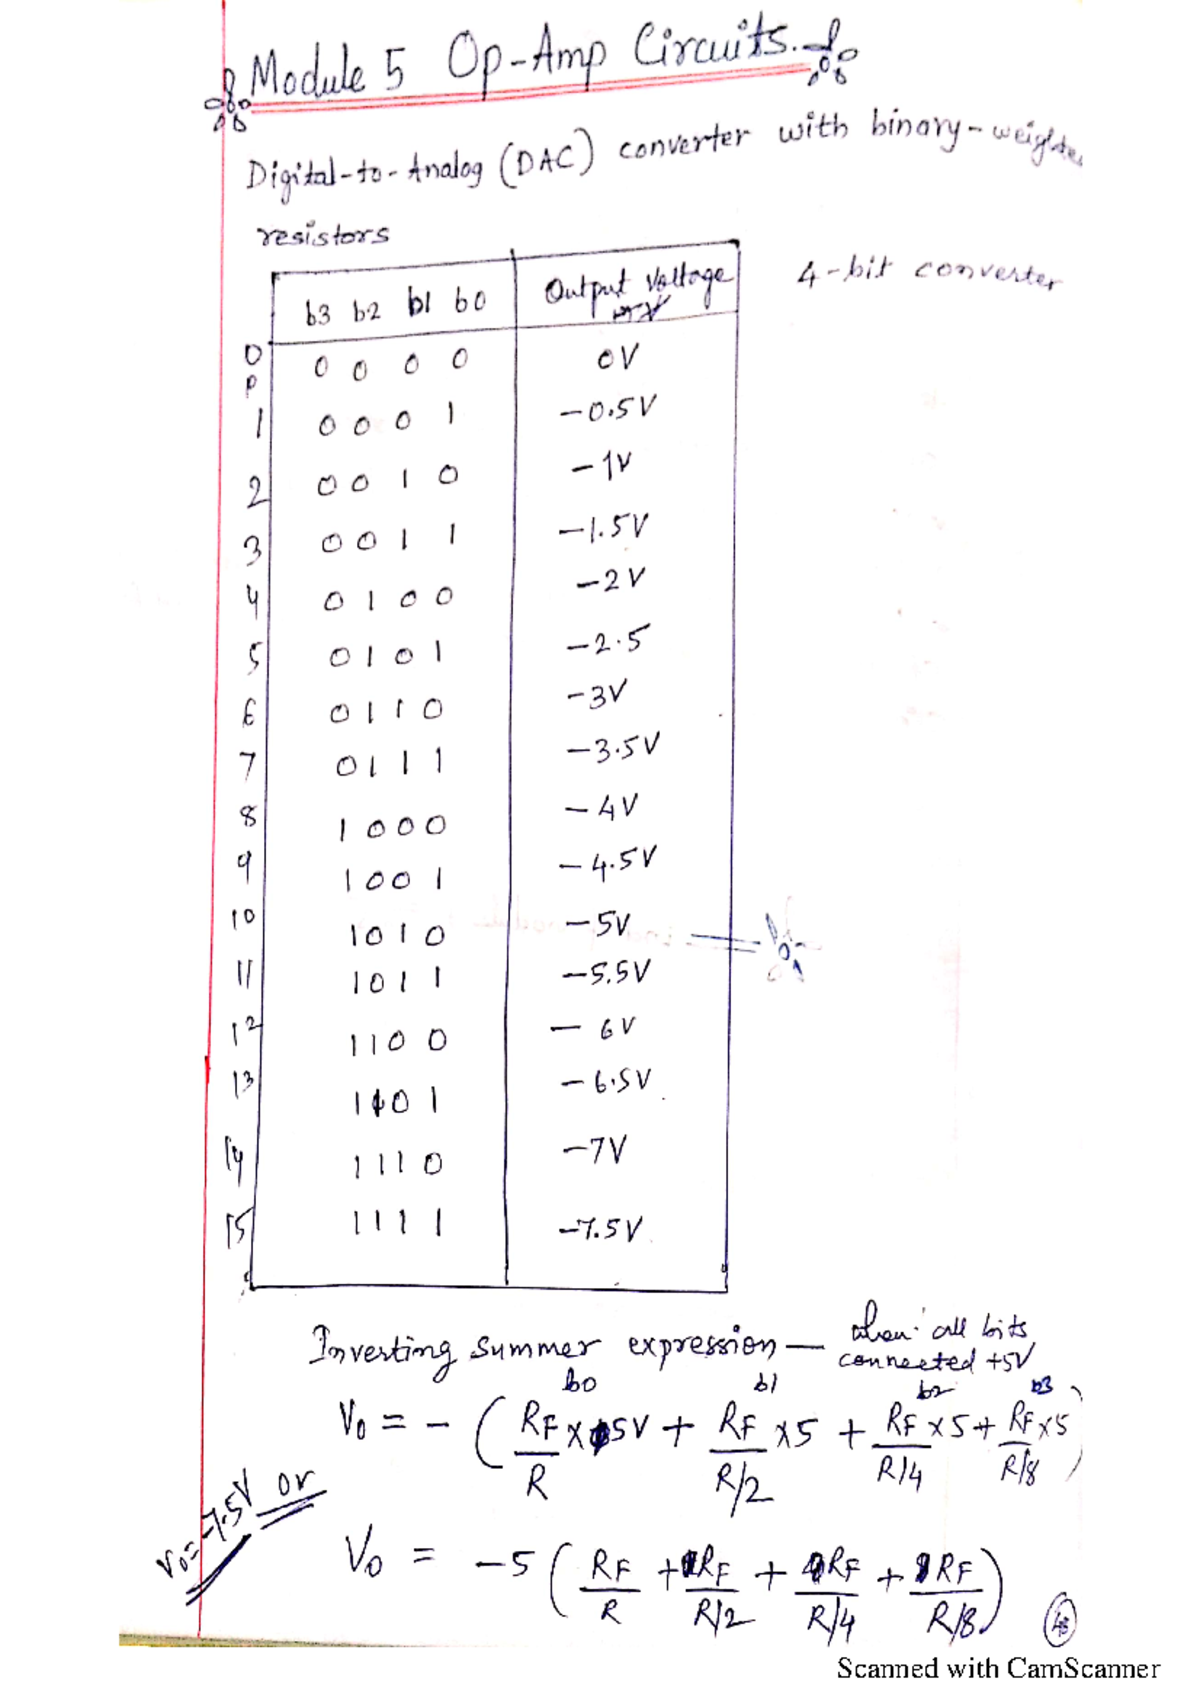 Module 5 Op-Amp Circuits.
Digital-to-Analog (DAC) converter with binary-weighted
resistors
4-bit converter
b3 b2 b1 b0 Output Voltage
0 0 0 0 0 0V
1 0 0 0 1 -0.5V
2 0 0 1 0 -1V
3 0 0 1 1 -1.5V
4 0 1 0 0 -2V
5 0 1 0 1 -2.5
6 0 1 1 0 -3V
7 0 1 1 1 -3.5V
8 1 0 0 0 -4V
9 1 0 0 1 -4.5V
10 1 0 1 0 -5V
11 1 0 1 1 -5.5V
12 1 1 0 0 -6V
13 1 1 0 1 -6.5V
14 1 1 1 0 -7V
15 1 1 1 1 -7.5V
Inverting Summer expression — when all bits
connected +5V
b0 b1 b2 b3
Vo = - (RF/R x 5V + RF/R/2 x5 + RF/R/4 x5 + RF/R/8 x5)
Vo = -7.5V or
Vo = -5 (RF/R + RF/R/2 + RF/R/4 + RF/R/8)
Scanned with CamScanner